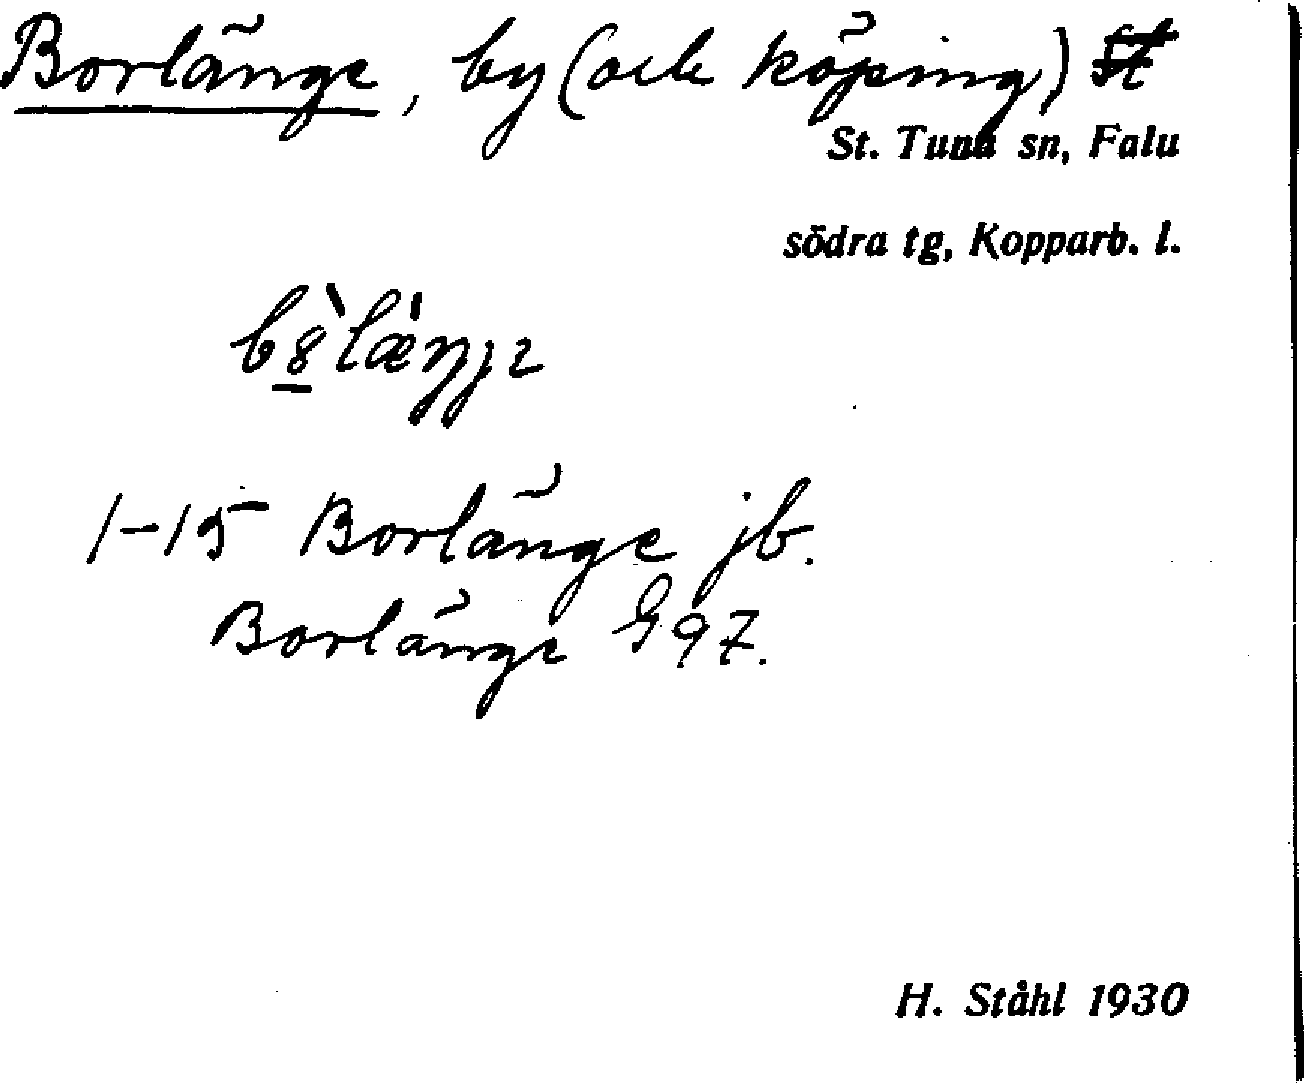 Borlänge, by (och köping)
St. Tuna sn, Falu
södra tg, Kopparb. l.
1-15 Borlänge jb.
Borlänge G97.
H. Ståhl 1930